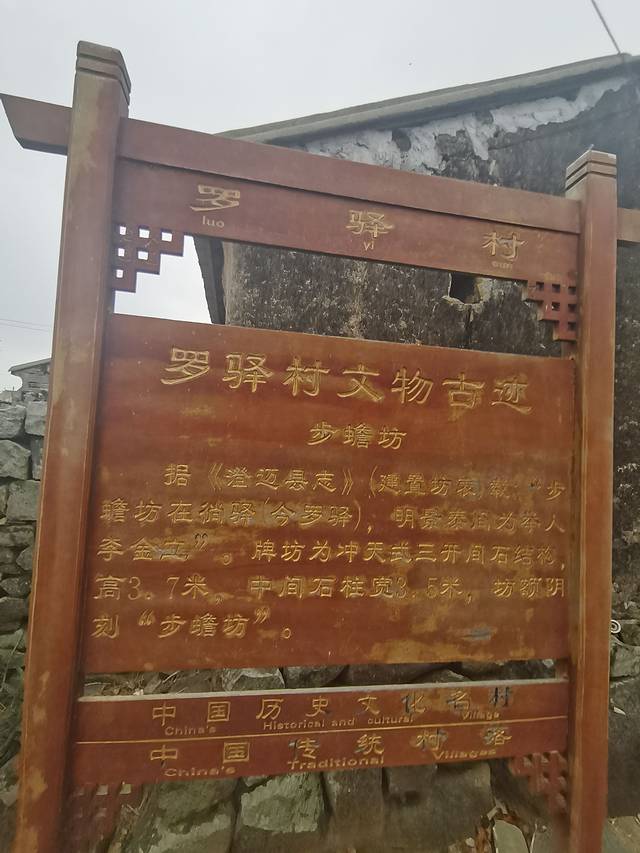 罗 驿 村
luo yi cun
罗驿村文物古迹
步蟾坊
据《澄迈县志》(建置坊表)载:“步
蟾坊在倘驿(今罗驿),明景泰间为举人
李金”。牌坊为冲天式三开间石结构,
高3.7米,中间石柱宽3.5米,坊额阴
刻“步蟾坊”。
中国历史文化名村
China's Historical and cultural Village
中国传统村落
China's Traditional Villages